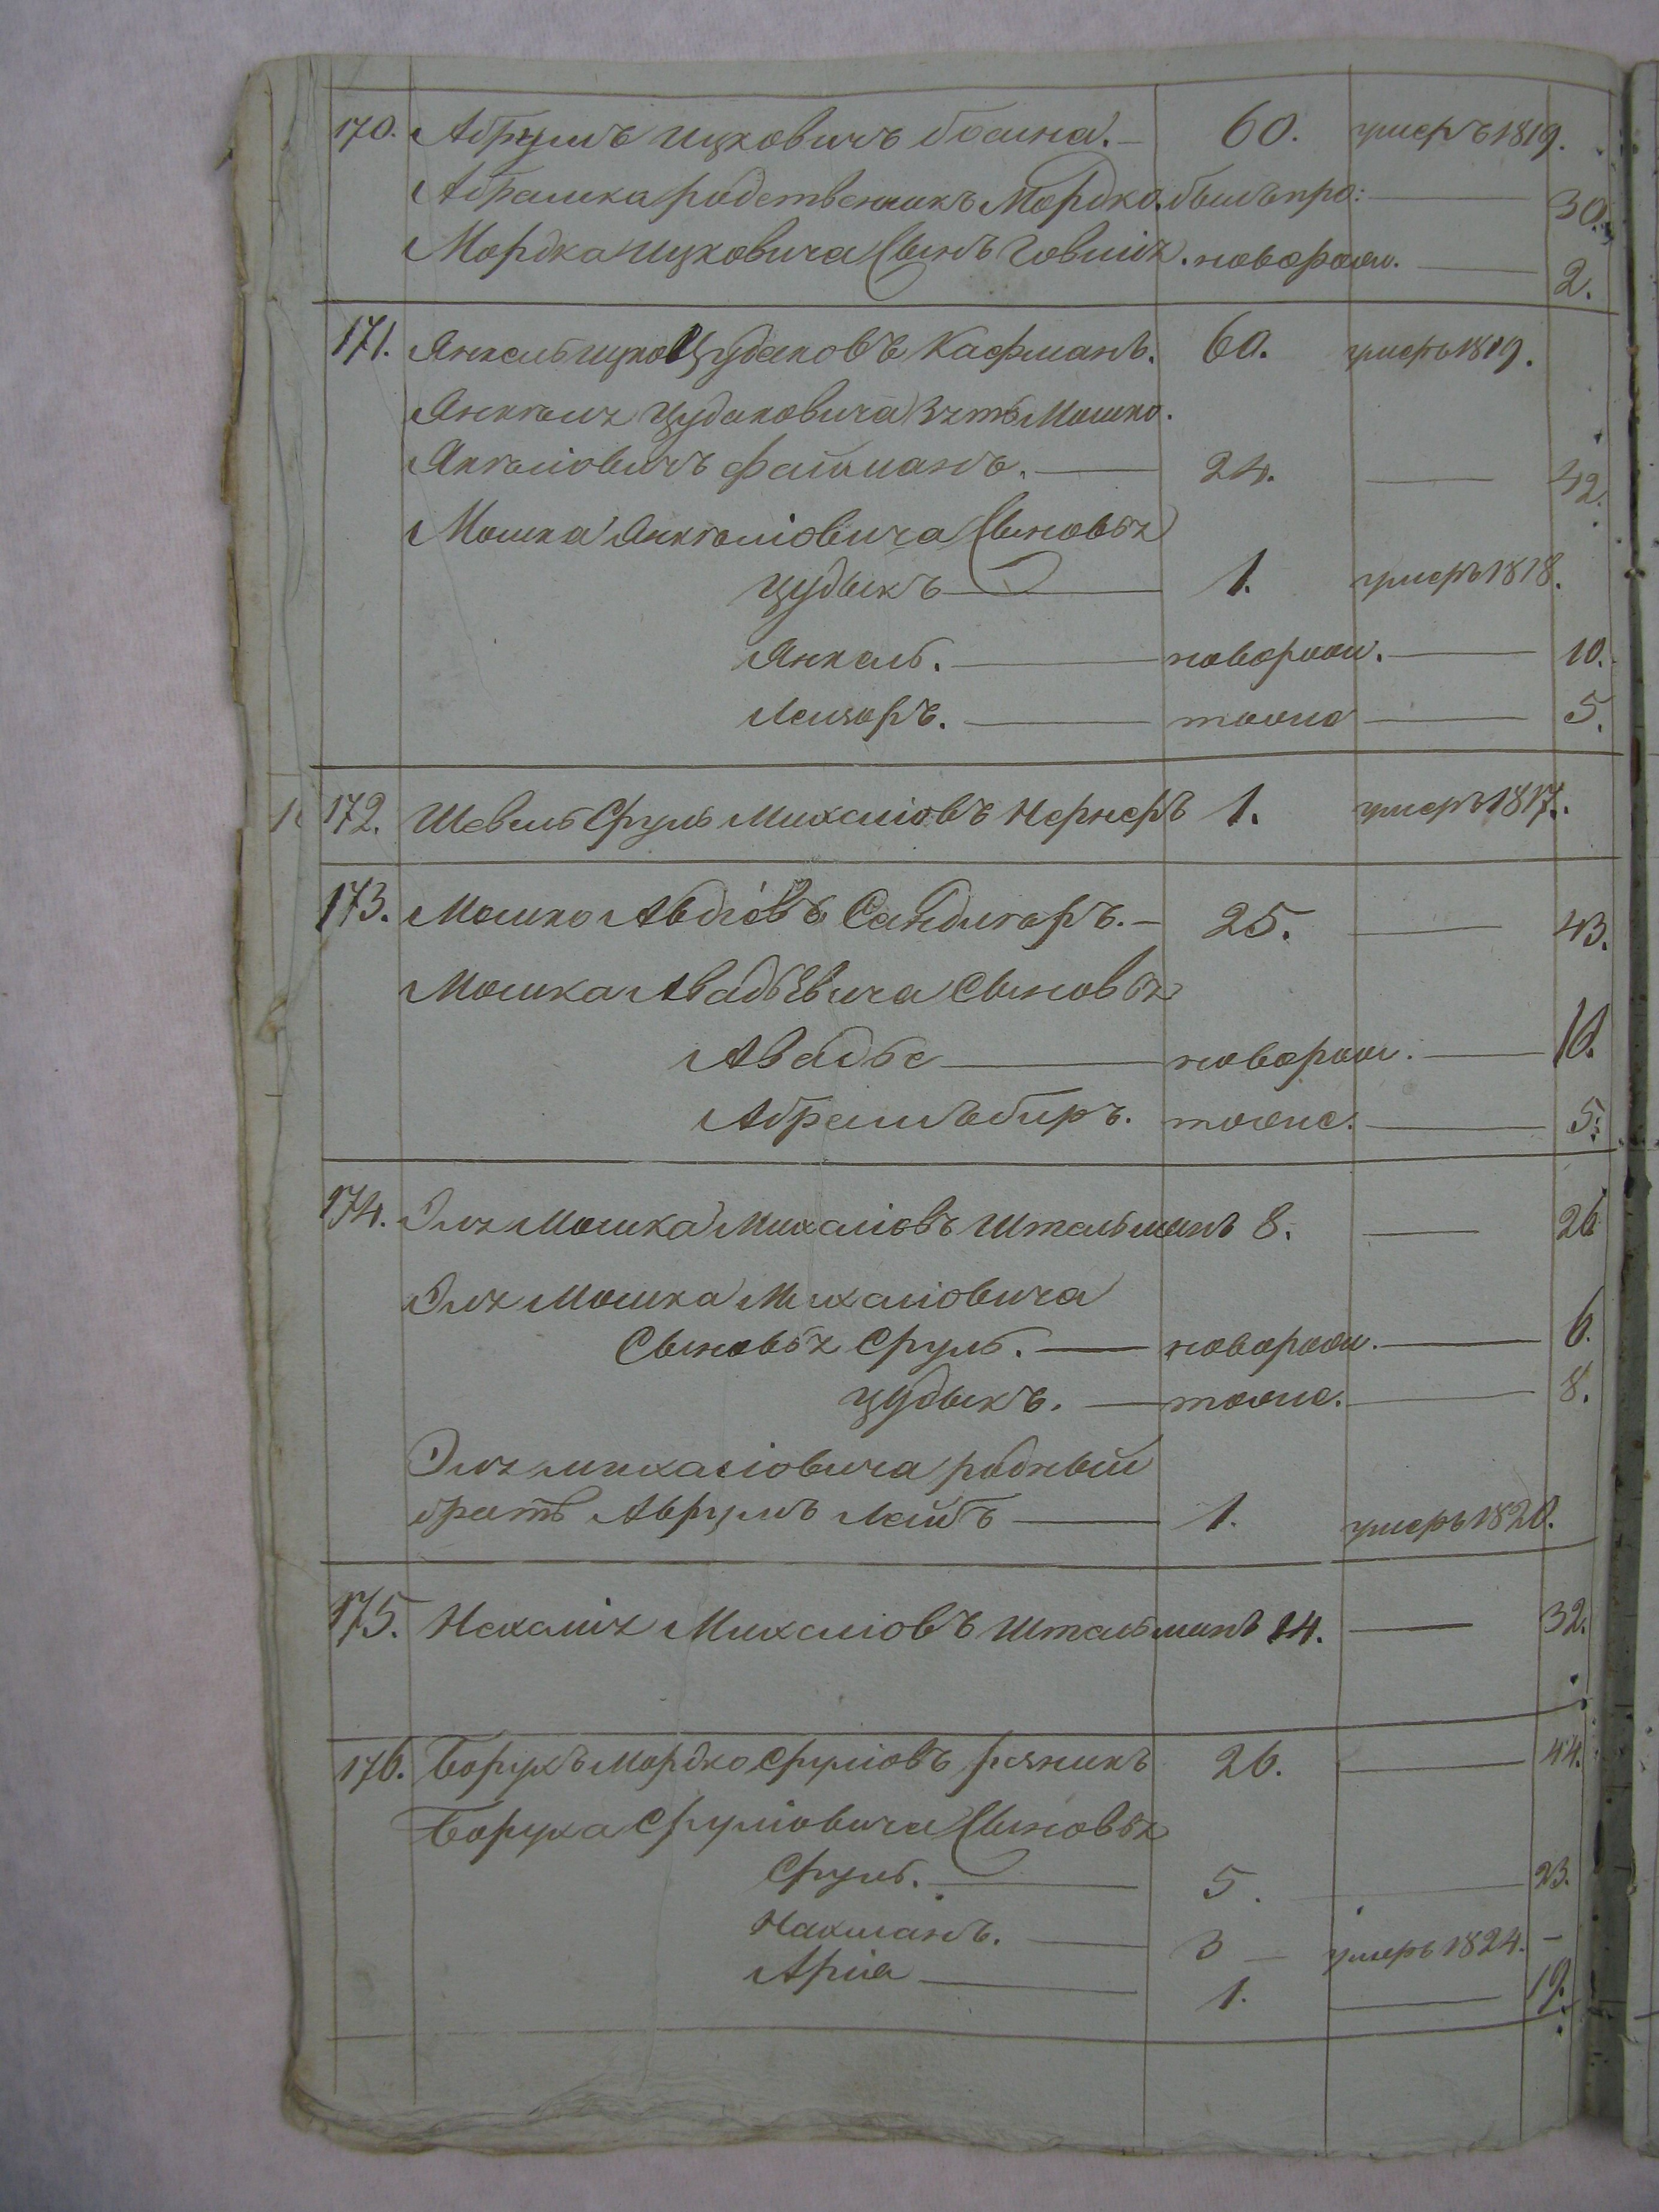 170. Абрумъ Ицковичъ боина. — 60. умеръ 1819.
Абрамка родственикъ Мордко. былъ про: — 30.
Мордка Ицковича Сынъ Говшія. новорож. — 2.
171. Янкель ицко Цудековъ Кафманъ. 60. умеръ 1819.
Янкеля Цудековича Зять Мошко.
Янкеліовичъ файманъ. — 24. — 42.
Мошка Янкеліовича Сыновья
Цудыкъ — 1. умеръ 1818.
Янкель. — новорож. — 10.
Лейзоръ. — тоже — 5.
172. Шевель Сруль Михаліовъ Нернеръ 1. умеръ 1817.
173. Мошко Авдіовъ Сандигоръ. — 25. — 43.
Мошка Авадьевича Сыновья
Авадье — новорож. — 10.
Абрамъ биръ. тоже. — 5.
174. Эля Мошка Михаліовъ Штальманъ 8. — 26
Эля Мошка Михаліовича
Сыновья Сруль. — новорож. — 6.
Цудыкъ. — тоже. — 8.
Эля михаліовича родный
братъ Аврумъ Лейбъ — 1. умеръ 1820.
175. Нехамія Михаліовъ Штальманъ 14. — 32.
176. Борухъ Мордко Сруліовъ резникъ 26. — 44.
Боруха Сруліовича Сыновья
Сруль. — 5. — 23.
Нахманъ. — 3 — умеръ 1824. —
Аріа — 1. — 19.